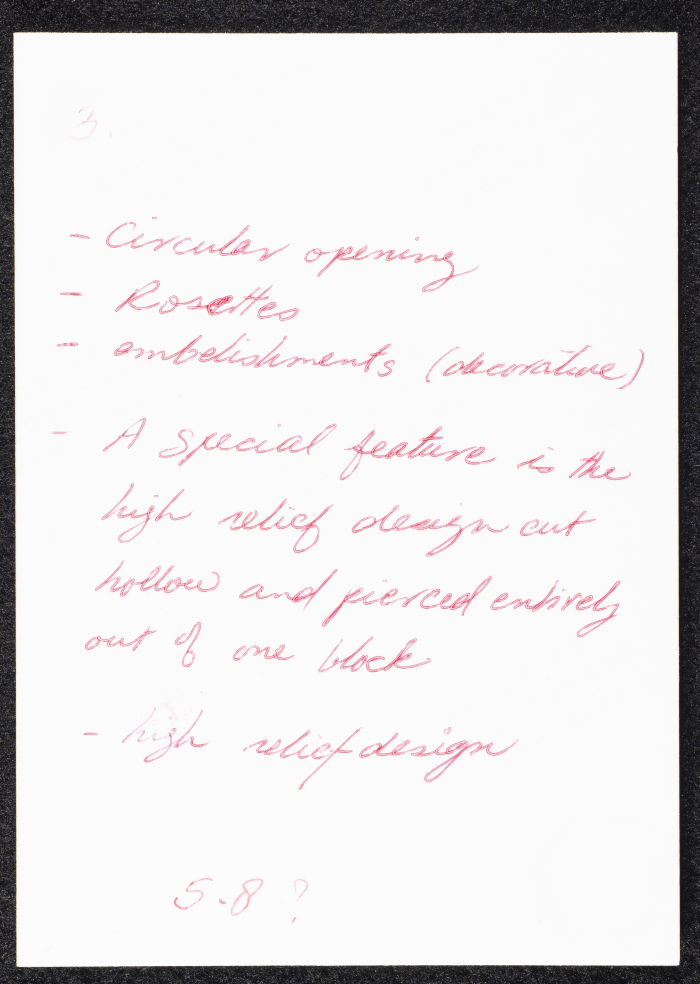 3.
- Circular opening
- Rosettes
- embelishments (decorative)
- A special feature is the
high relief design cut
hollow and pierced entirely
out of one block
- high relief design
5-8?